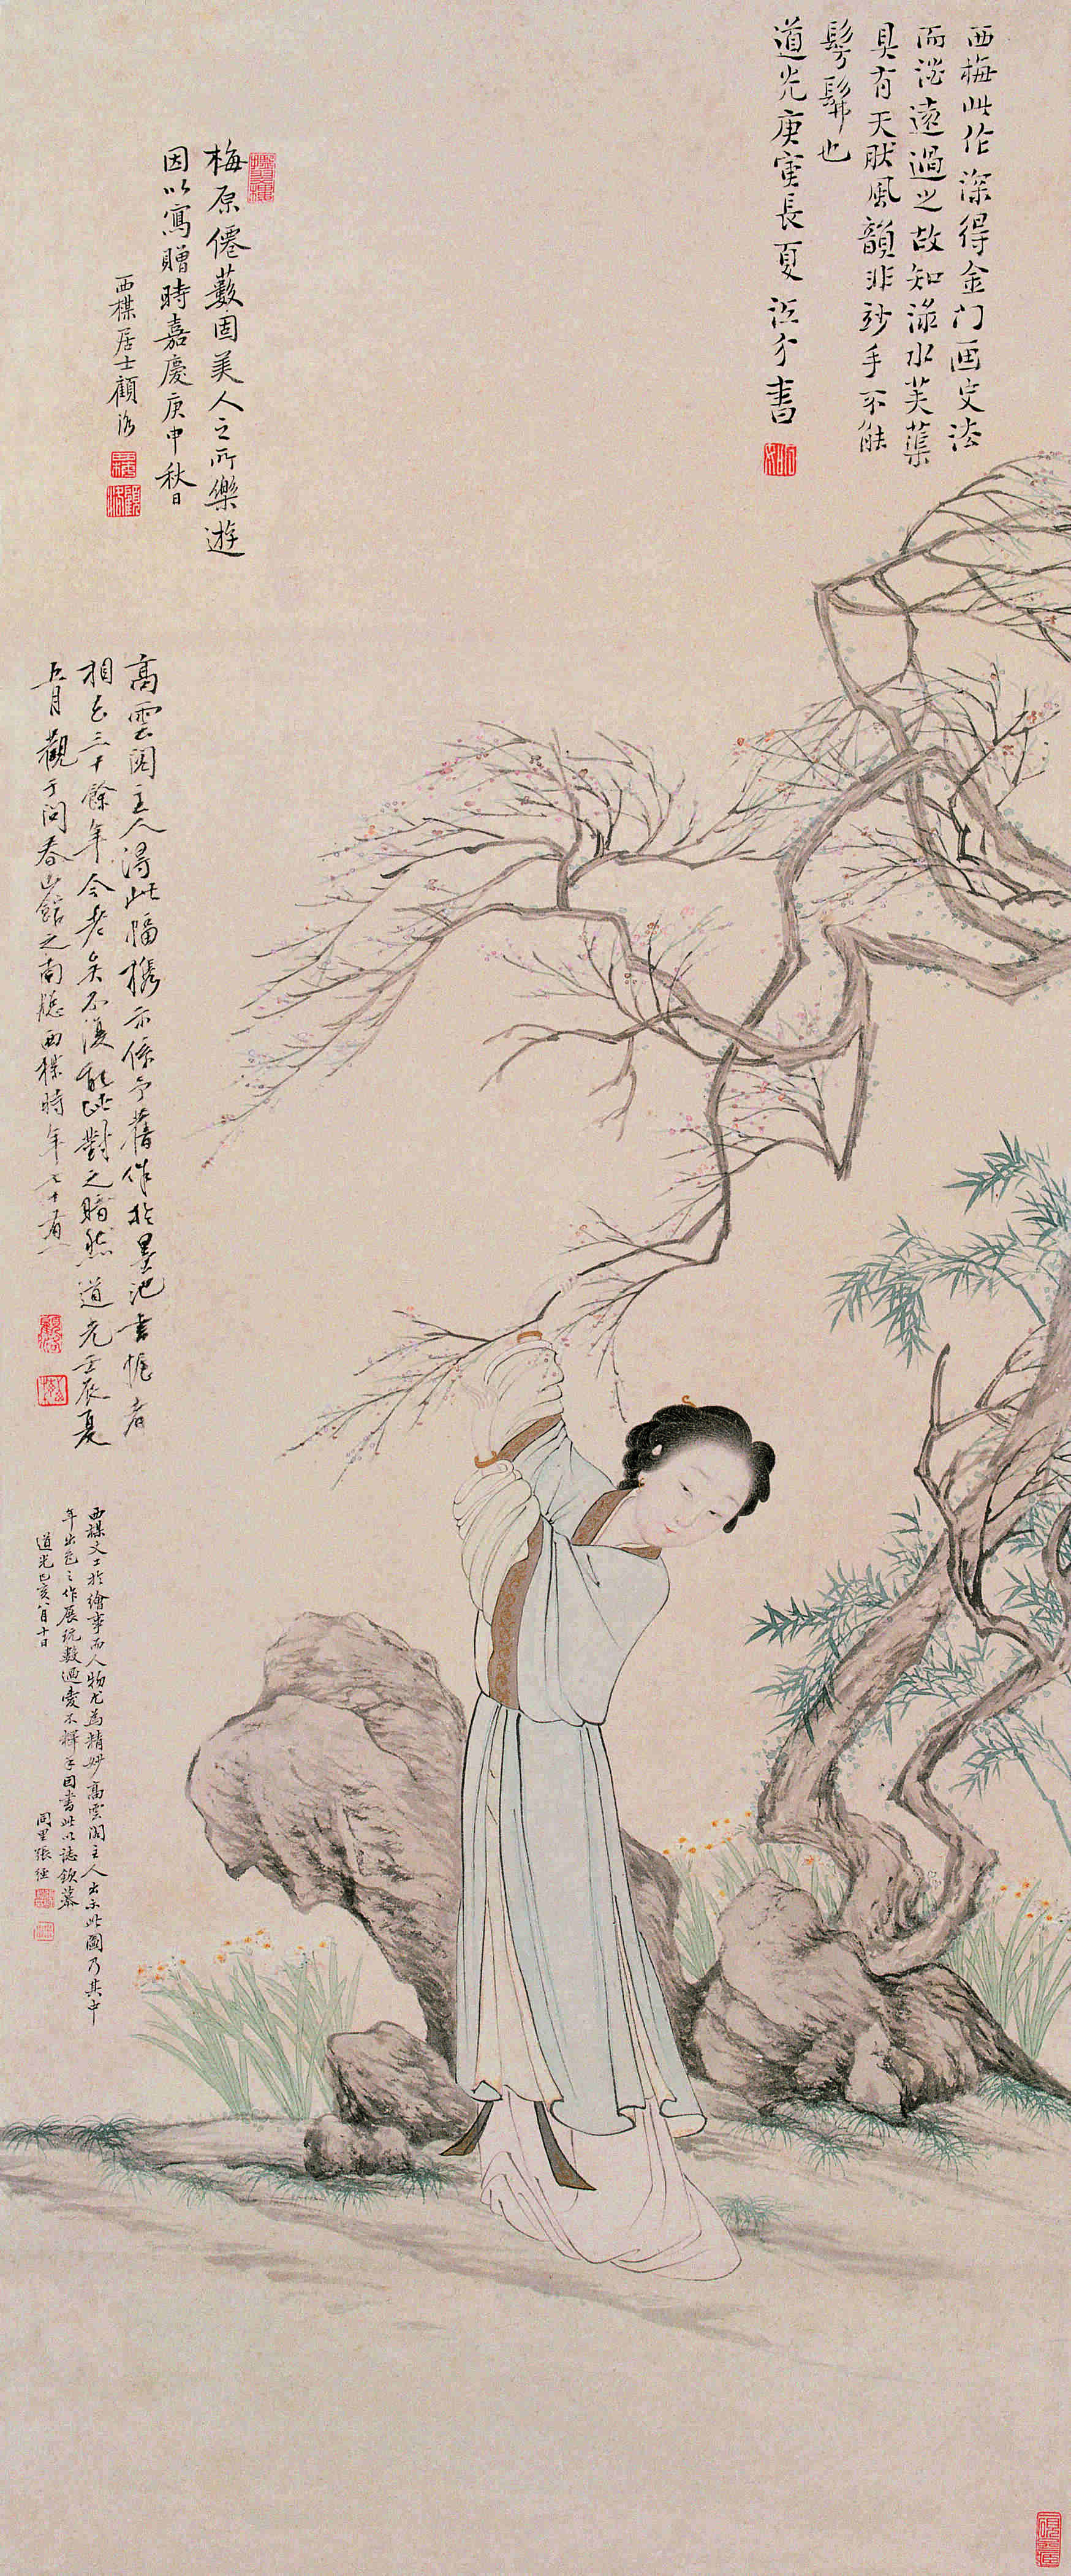 西梅此作深得金门画史法
而澹遠過之故知淥水芙蕖
具有天然風韻非妙手不能
髣髴也
道光庚寅長夏
書
梅原僊蕤固美人之所樂遊
因以寫贈時嘉慶庚申秋日
西楳居士顧洛
高雲閣主人得此幅攜示係予舊作於墨池書幌者
相去三十餘年今老矣不復能此對之黯然道光壬辰夏
五月觀于問春山館之南牕西楳時年七十有一
西楳丈工於繪事而人物尤為精妙高雲閣主人出示此圖乃其中
年出色之作展玩數過愛不釋手因書此以誌欽慕
道光己亥八月十日
同里張